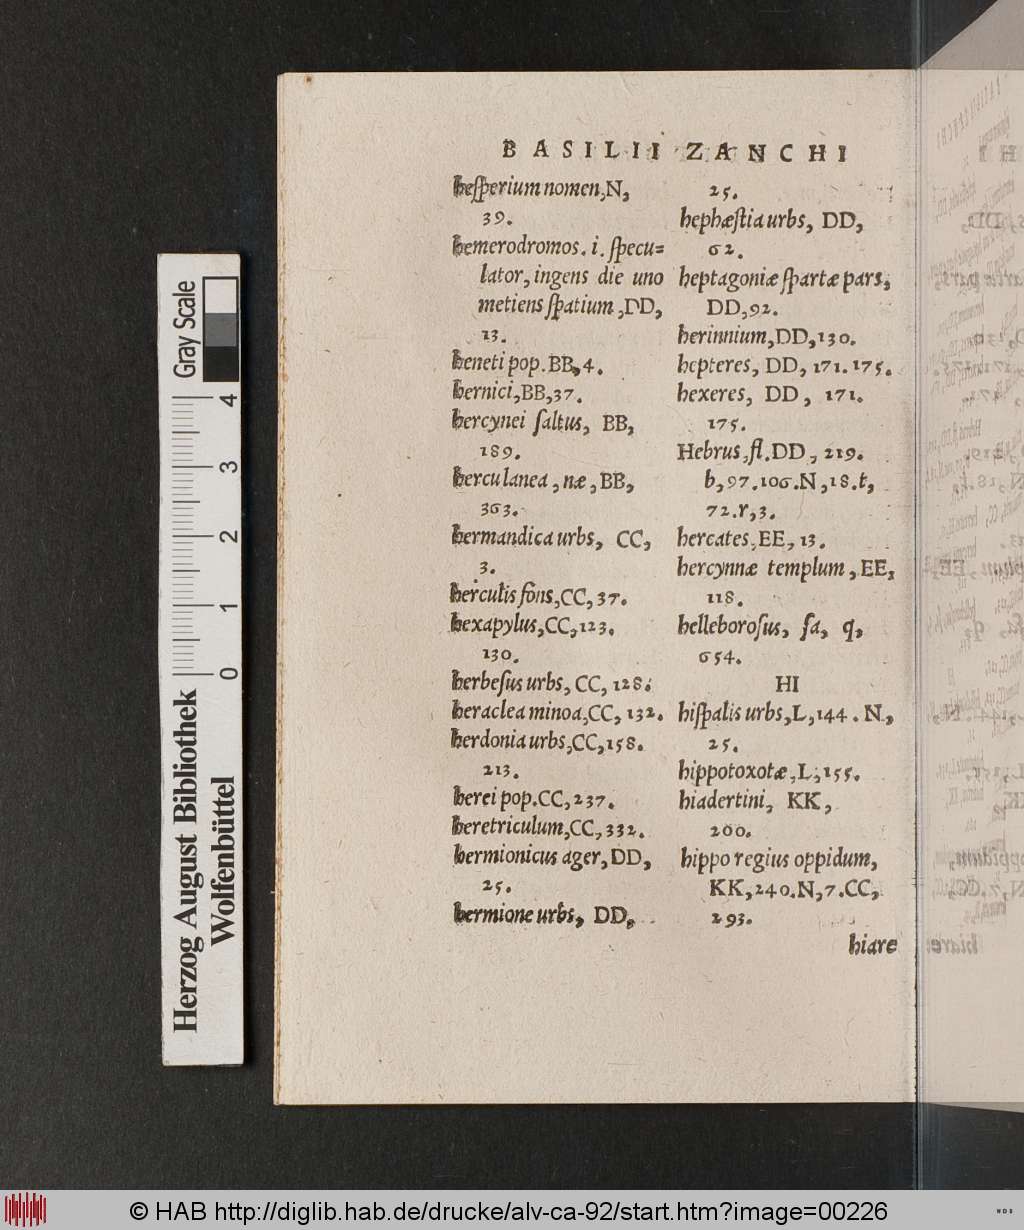 BASILII ZANCHI
heſperium nomen, N,
39.
hemerodromos. i. ſpecu=
lator, ingens die uno
metiens ſpatium, DD,
13.
heneti pop. BB, 4.
hernici, BB, 37.
hercynei ſaltus, BB,
189.
herculanea, næ, BB,
363.
hermandica urbs, CC,
3.
herculis fons, CC, 37.
hexapylus, CC, 123.
130.
herbeſus urbs, CC, 128.
heraclea minoa, CC, 132.
herdonia urbs, CC, 158.
213.
herei pop. CC, 237.
heretriculum, CC, 332.
hermionicus ager, DD,
25.
hermione urbs, DD,
25.
hephæſtia urbs, DD,
62.
heptagoniæ ſpartæ pars,
DD, 92.
herinnium, DD, 130.
hepteres, DD, 171. 175.
hexeres, DD, 171.
175.
Hebrus, fl. DD, 219.
b, 97. 106. N, 18. t,
72. r, 3.
hercates, EE, 13.
hercynnæ templum, EE,
118.
helleboroſus, ſa, q,
654.
HI
hiſpalis urbs, L, 144. N,
25.
hippotoxotæ, L, 155.
hiadertini, KK,
200.
hippo regius oppidum,
KK, 240. N, 7. CC,
293.
hiare
Gray Scale
4
3
2
1
0
Herzog August Bibliothek
Wolfenbüttel
© HAB http://diglib.hab.de/drucke/alv-ca-92/start.htm?image=00226